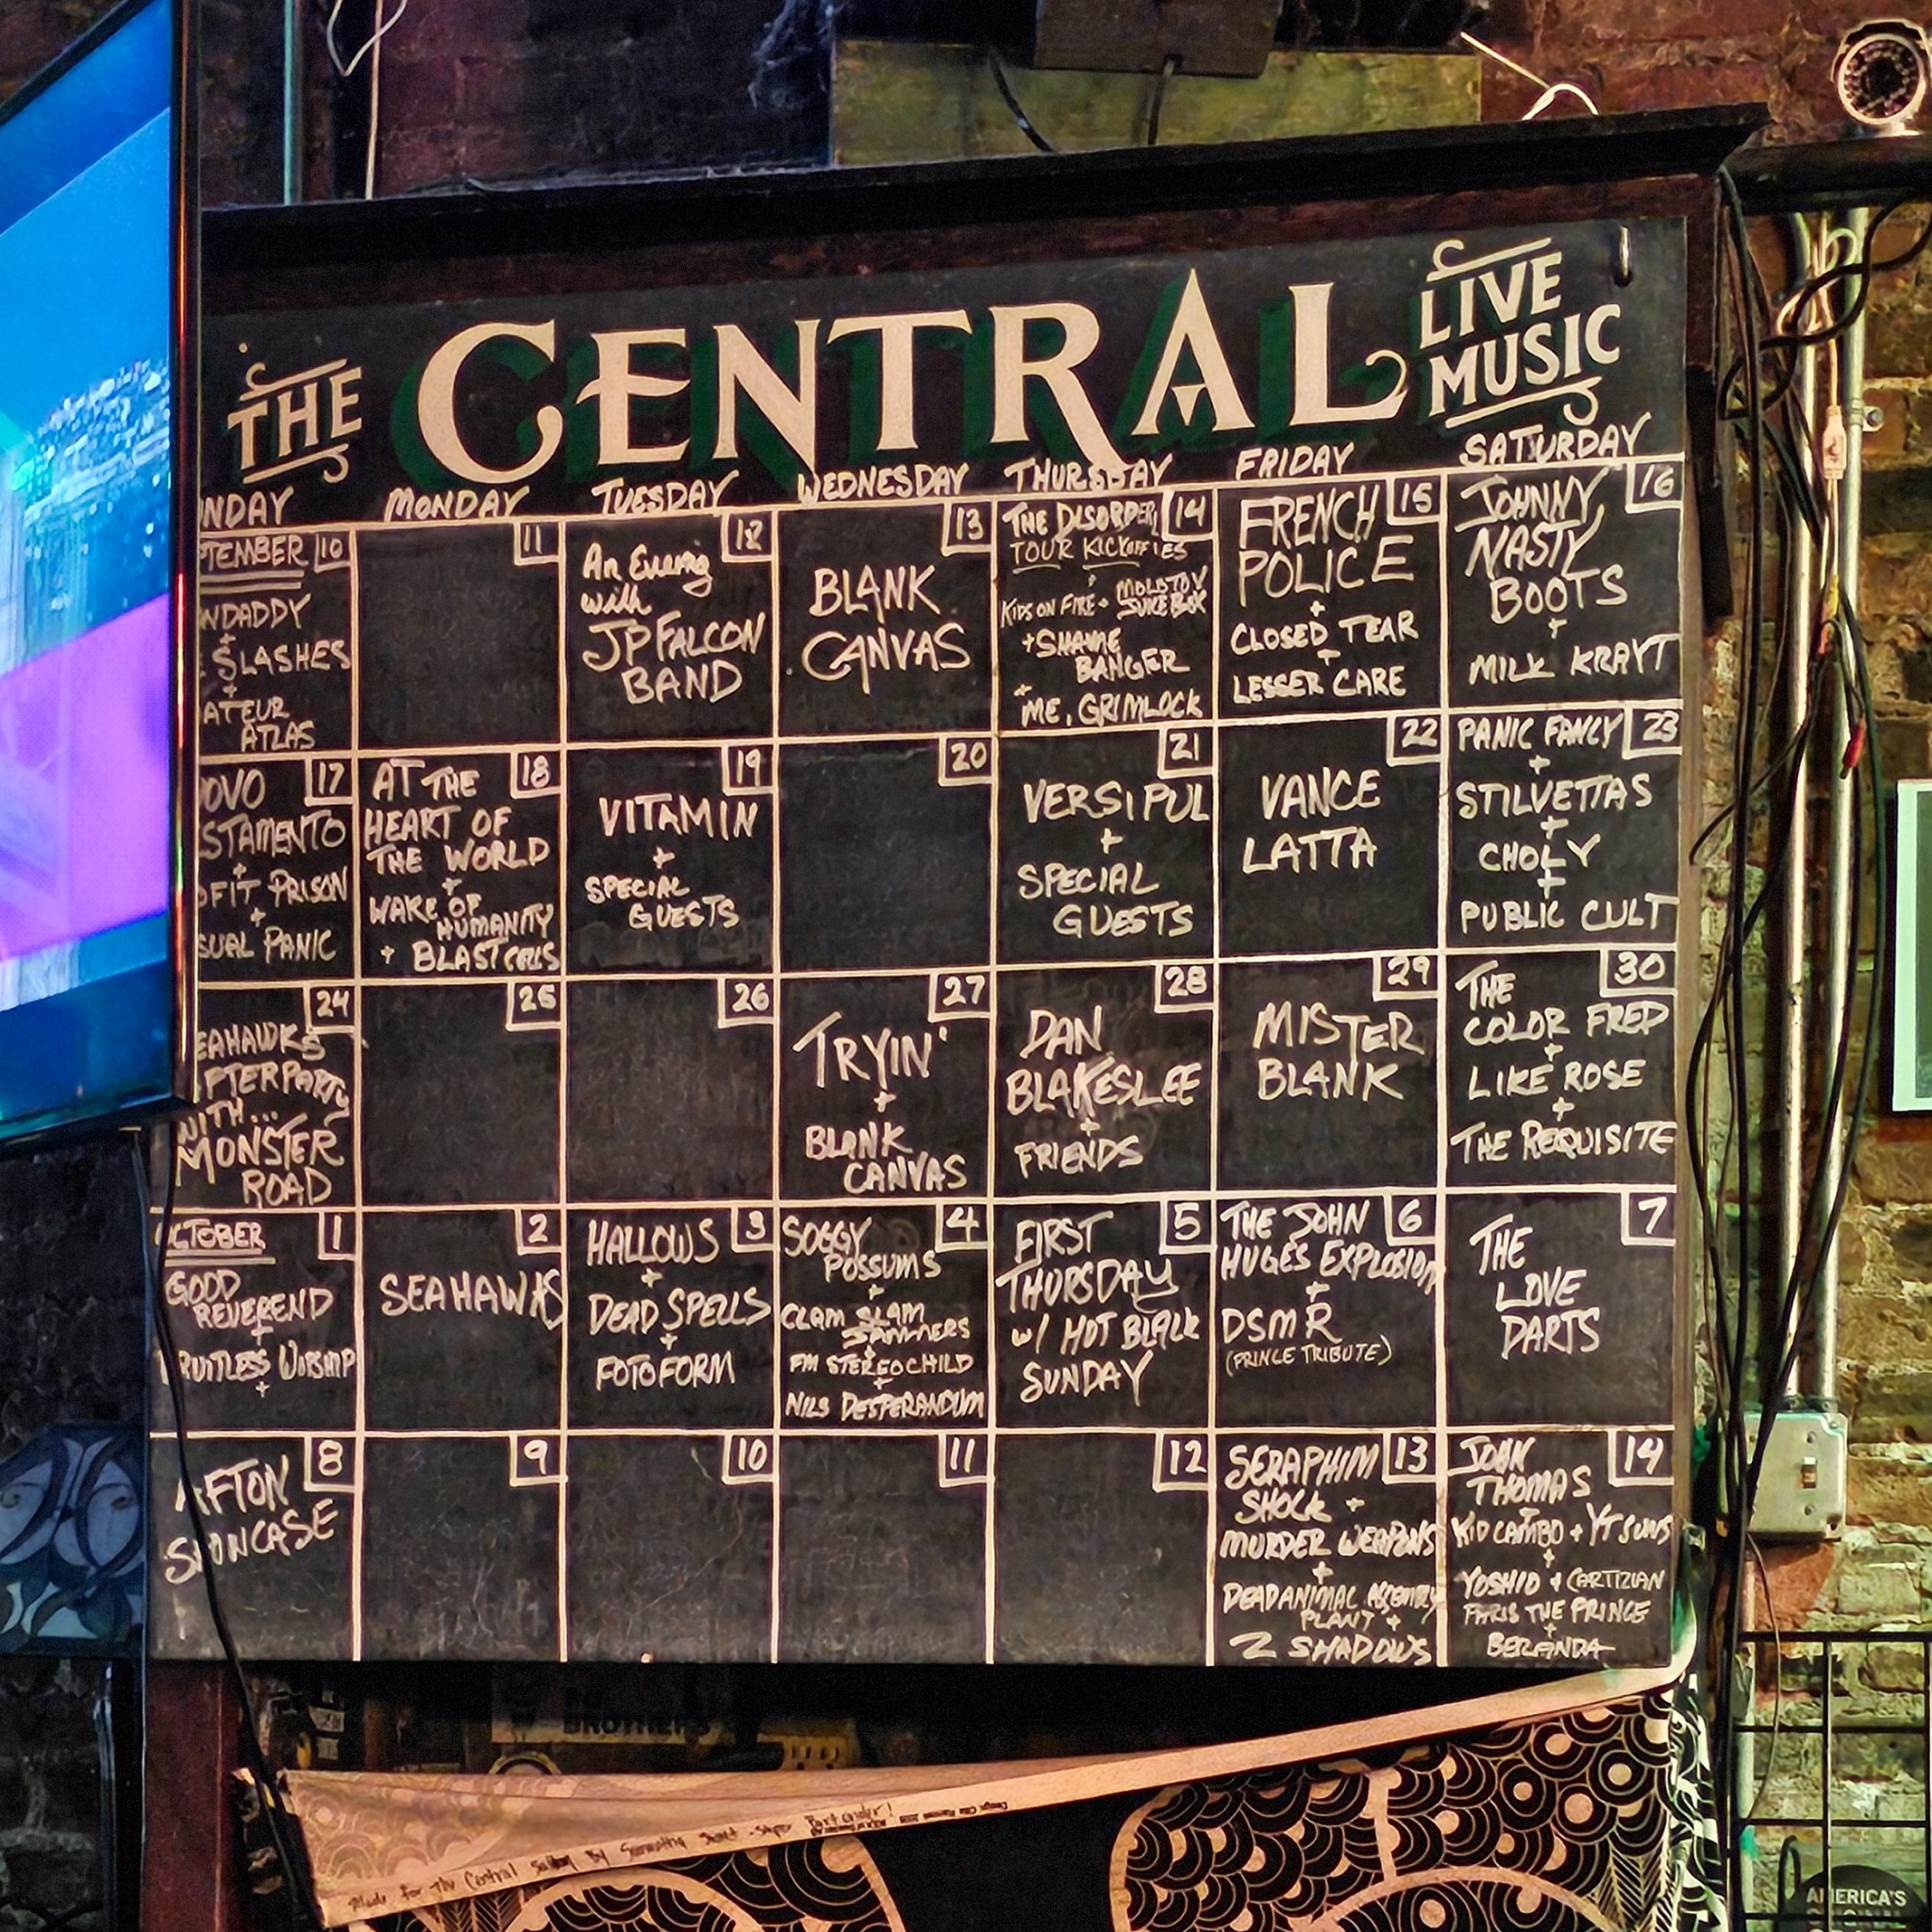 THE CENTRAL LIVE MUSIC
NDAY MONDAY TUESDAY WEDNESDAY THURSDAY FRIDAY SATURDAY
TEMBER 10
NDADDY
+
SLASHES
+
ATEUR
ATLAS
11
12
An Evening
with
JP FALCON
BAND
13
BLANK
CANVAS
THE DISORDERLIES 14
TOUR KICKOFF
KIDS ON FIRE + MOLOTOV
JUKEBOX
+ SHAME
BANGER
+
ME, GRIMLOCK
FRENCH 15
POLICE
+
CLOSED TEAR
+
LESSER CARE
JOHNNY 16
NASTY
BOOTS
+
MILK KRAYT
OVO 17
STAMENTO
+
OFIT PRISON
+
SUAL PANIC
AT THE 18
HEART OF
THE WORLD
+
WAKE OF
HUMANITY
+ BLAST CELLS
19
VITAMIN
+
SPECIAL
GUESTS
20
21
VERSIPUL
+
SPECIAL
GUESTS
22
VANCE
LATTA
PANIC FANCY 23
+
STILVETTAS
+
CHOLY
+
PUBLIC CULT
24
EAHAWKS
FTERPARTY
WITH...
MONSTER
ROAD
25
26
27
TRYIN'
+
BLANK
CANVAS
28
DAN
BLAKESLEE
+
FRIENDS
29
MISTER
BLANK
THE 30
COLOR FRED
+
LIKE ROSE
+
THE REQUISITE
CTOBER 1
GOOD
REVEREND
+
RUITLESS WORSHIP
+
2
SEAHAWKS
HALLOWS 3
+
DEAD SPELLS
+
FOTOFORM
SOGGY 4
POSSUMS
+
CLAM SLAM
JAMMERS
+
FM STEREOCHILD
+
NILS DESPERANDUM
FIRST 5
THURSDAY
W/ HOT BLACK
SUNDAY
THE JOHN 6
HUGES EXPLOSION
+
DSMR
(PRINCE TRIBUTE)
7
THE
LOVE
DARTS
8
AFTON
SHOWCASE
9
10
11
12
SERAPHIM 13
SHOCK +
MURDER WEAPONS
+
DEAD ANIMAL ASSEMBLY
PLANT +
2 SHADOWS
JOHN 14
THOMAS
+
KID CAMBO + YT SUNS
+
YOSHIO + CARTIZIAN
FARIS THE PRINCE
+
BERANDA
BROTHERS
Made for The Central Saloon By Samantha
Bartender!
AMERICA'S